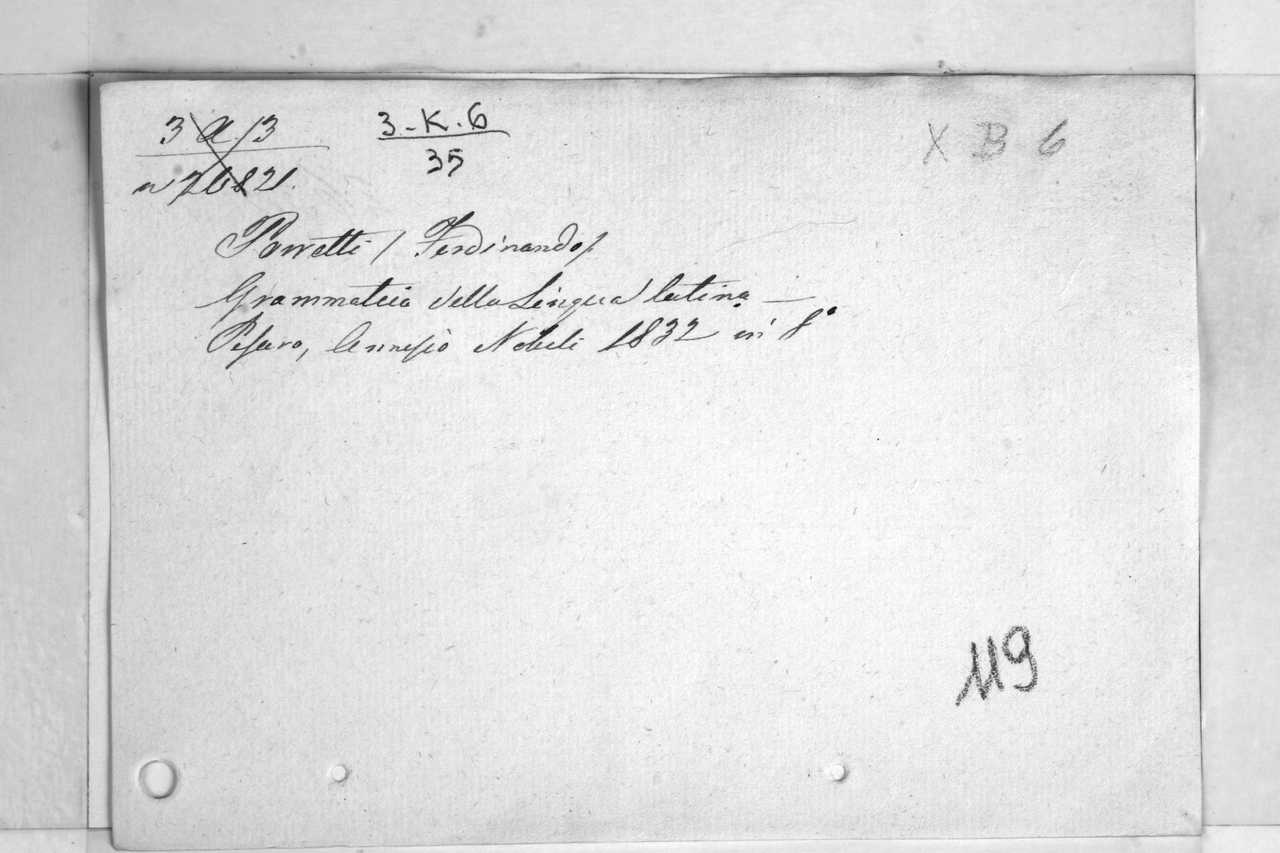 3 A /3
n 26821.
3-K.6
35
X B 6
Porretti / Ferdinando /
Grammatica della Lingua latina —
Pesaro, Annesio Nobili 1832 in 8°
119